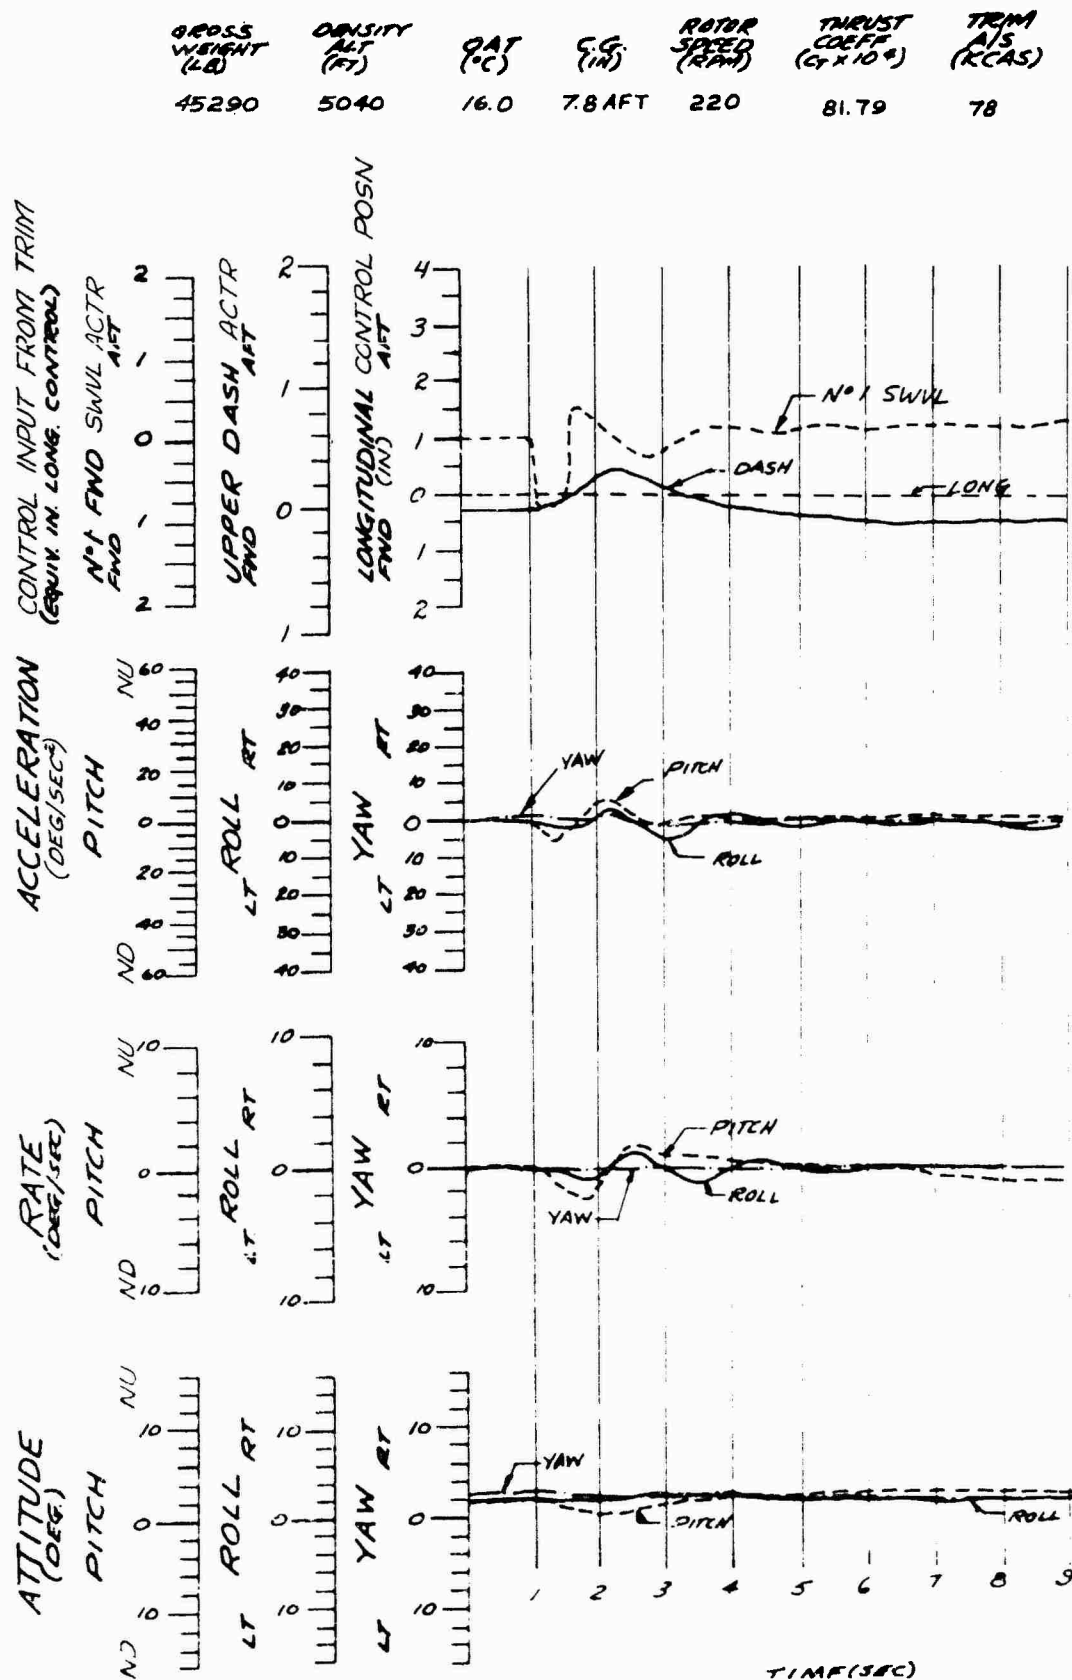 GROSS WEIGHT (LB)
DENSITY ALT (FT)
OAT (°C)
C.G. (IN)
ROTOR SPEED (RPM)
THRUST COEFF (CT X 10⁴)
TRIM A/S (KCAS)
45290 5040 16.0 7.8 AFT 220 81.79 78
CONTROL INPUT FROM TRIM
(EQUIV. IN. LONG. CONTROL)
Nº1 FWD SWVL ACTR
FWD AFT
2
1
0
1
2
UPPER DASH ACTR
FWD AFT
2
1
0
1
LONGITUDINAL CONTROL POSN
(IN)
FWD AFT
4
3
2
1
0
1
2
Nº1 SWVL
DASH
LONG
ACCELERATION
(DEG/SEC²)
PITCH
ND NU
60
40
20
0
20
40
60
ROLL
LT RT
40
30
20
10
0
10
20
30
40
YAW
LT RT
40
30
20
10
0
10
20
30
40
YAW
PITCH
ROLL
RATE
(DEG/SEC)
PITCH
ND NU
10
0
10
ROLL
LT RT
10
0
10
YAW
LT RT
10
0
10
PITCH
ROLL
YAW
ATTITUDE
(DEG.)
PITCH
ND NU
10
0
10
ROLL
LT RT
10
0
10
YAW
LT RT
10
0
10
YAW
PITCH
ROLL
1 2 3 4 5 6 7 8 9
TIME (SEC)